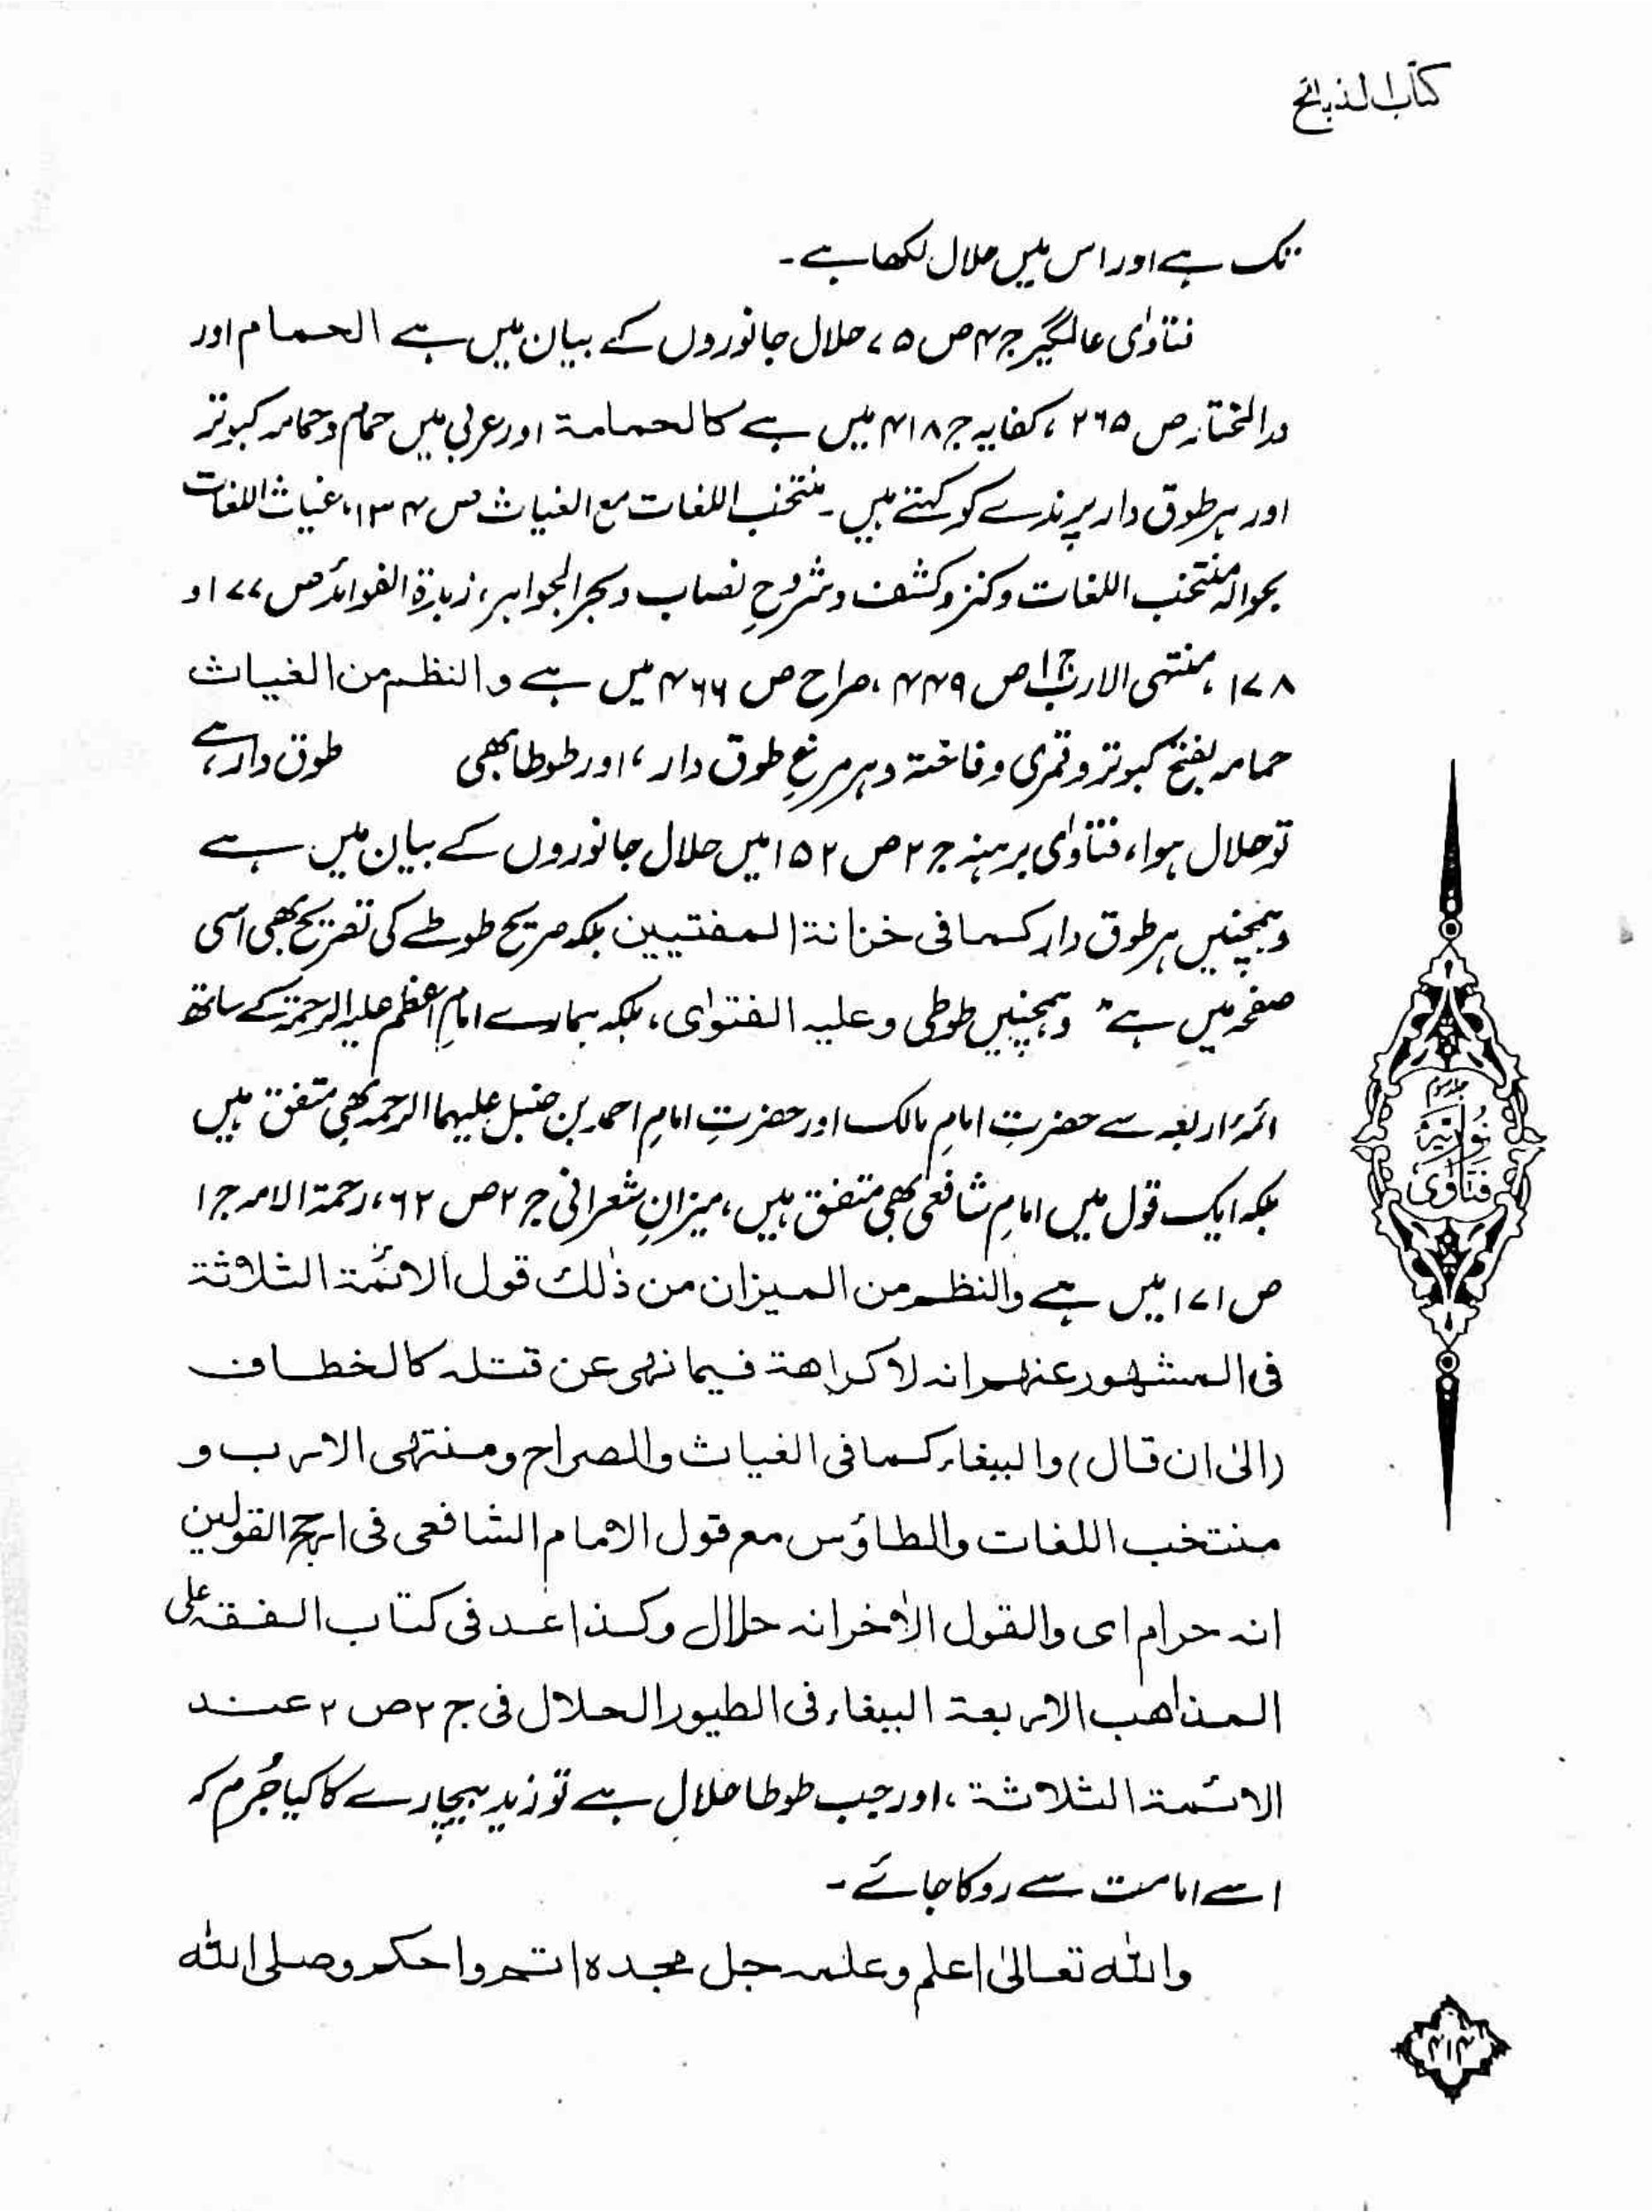 کتاب الذبائح
تک ہے اور اس میں حلال لکھا ہے۔
فتاوٰی عالمگیر ج۴ ص ۷۵ حلال جانوروں کے بیان میں ہے الحمام اور
درالمختار ص ۲۶۵، کفایہ ج ۴۱۸ میں ہے کالحمامۃ اور عربی میں حمام و حمامہ کبوتر
اور ہر طوق دار پرندے کو کہتے ہیں۔ منتخب اللغات مع الغیاث ص ۱۳۴، غیاث اللغات
بحوالہ منتخب اللغات و کنز و کشف و شروحِ نصاب و بحر الجواہر، زبدۃ الفوائد ص ۱۷۷ و
۱۷۸، منتہی الارب ج۱ ص ۴۴۹، صراح ص ۴۶۶ میں ہے والنظم من الغیاث
حمامہ بفتح کبوتر و قمری و فاختہ و ہر مرغِ طوق دار، اور طوطا بھی طوق دار ہے،
تو حلال ہوا، فتاوٰی برہنہ ج ۲ ص ۱۵۲ میں حلال جانوروں کے بیان میں ہے
وہمچنیں ہر طوق دار کما فی خزانۃ المفتیین بلکہ صریح طوطے کی تصریح بھی اسی
صفحہ میں ہے" وہمچنیں طوطی وعلیہ الفتوٰی، بلکہ ہمارے امامِ اعظم علیہ الرحمۃ کے ساتھ
ائمۂ اربعہ سے حضرتِ امامِ مالک اور حضرتِ امامِ احمد بن حنبل علیہما الرحمہ بھی متفق ہیں
بلکہ ایک قول میں امامِ شافعی بھی متفق ہیں، میزانِ شعرانی ج ۲ ص ۶۲، رحمۃ الامہ ج ۱
ص ۱۷۱ میں ہے والنظم من المیزان من ذٰلک قول الائمۃ الثلاثۃ
فی المشہور عنہم انہ لا کراھۃ فیما نہی عن قتلہ کالخطاف
(الیٰ ان قال) والببغاء کما فی الغیاث والصراح ومنتہی الارب و
منتخب اللغات والطاؤس مع قول الامام الشافعی فی ارجح القولین
انہ حرام ای والقول الاٰخر انہ حلال وکذا عد فی کتاب الفقہ علی
المذاھب الاربعۃ الببغاء فی الطیور الحلال فی ج ۲ ص ۲ عند
الائمۃ الثلاثۃ، اور جب طوطا حلال ہے تو زید بیچارے کا کیا جُرم کہ
اسے امامت سے روکا جائے۔
واللہ تعالیٰ اعلم وعلمہ جل مجدہ اتم واحکم وصلی اللہ
جلد سوم
نوریہ
فتاوٰی
۴۱۴